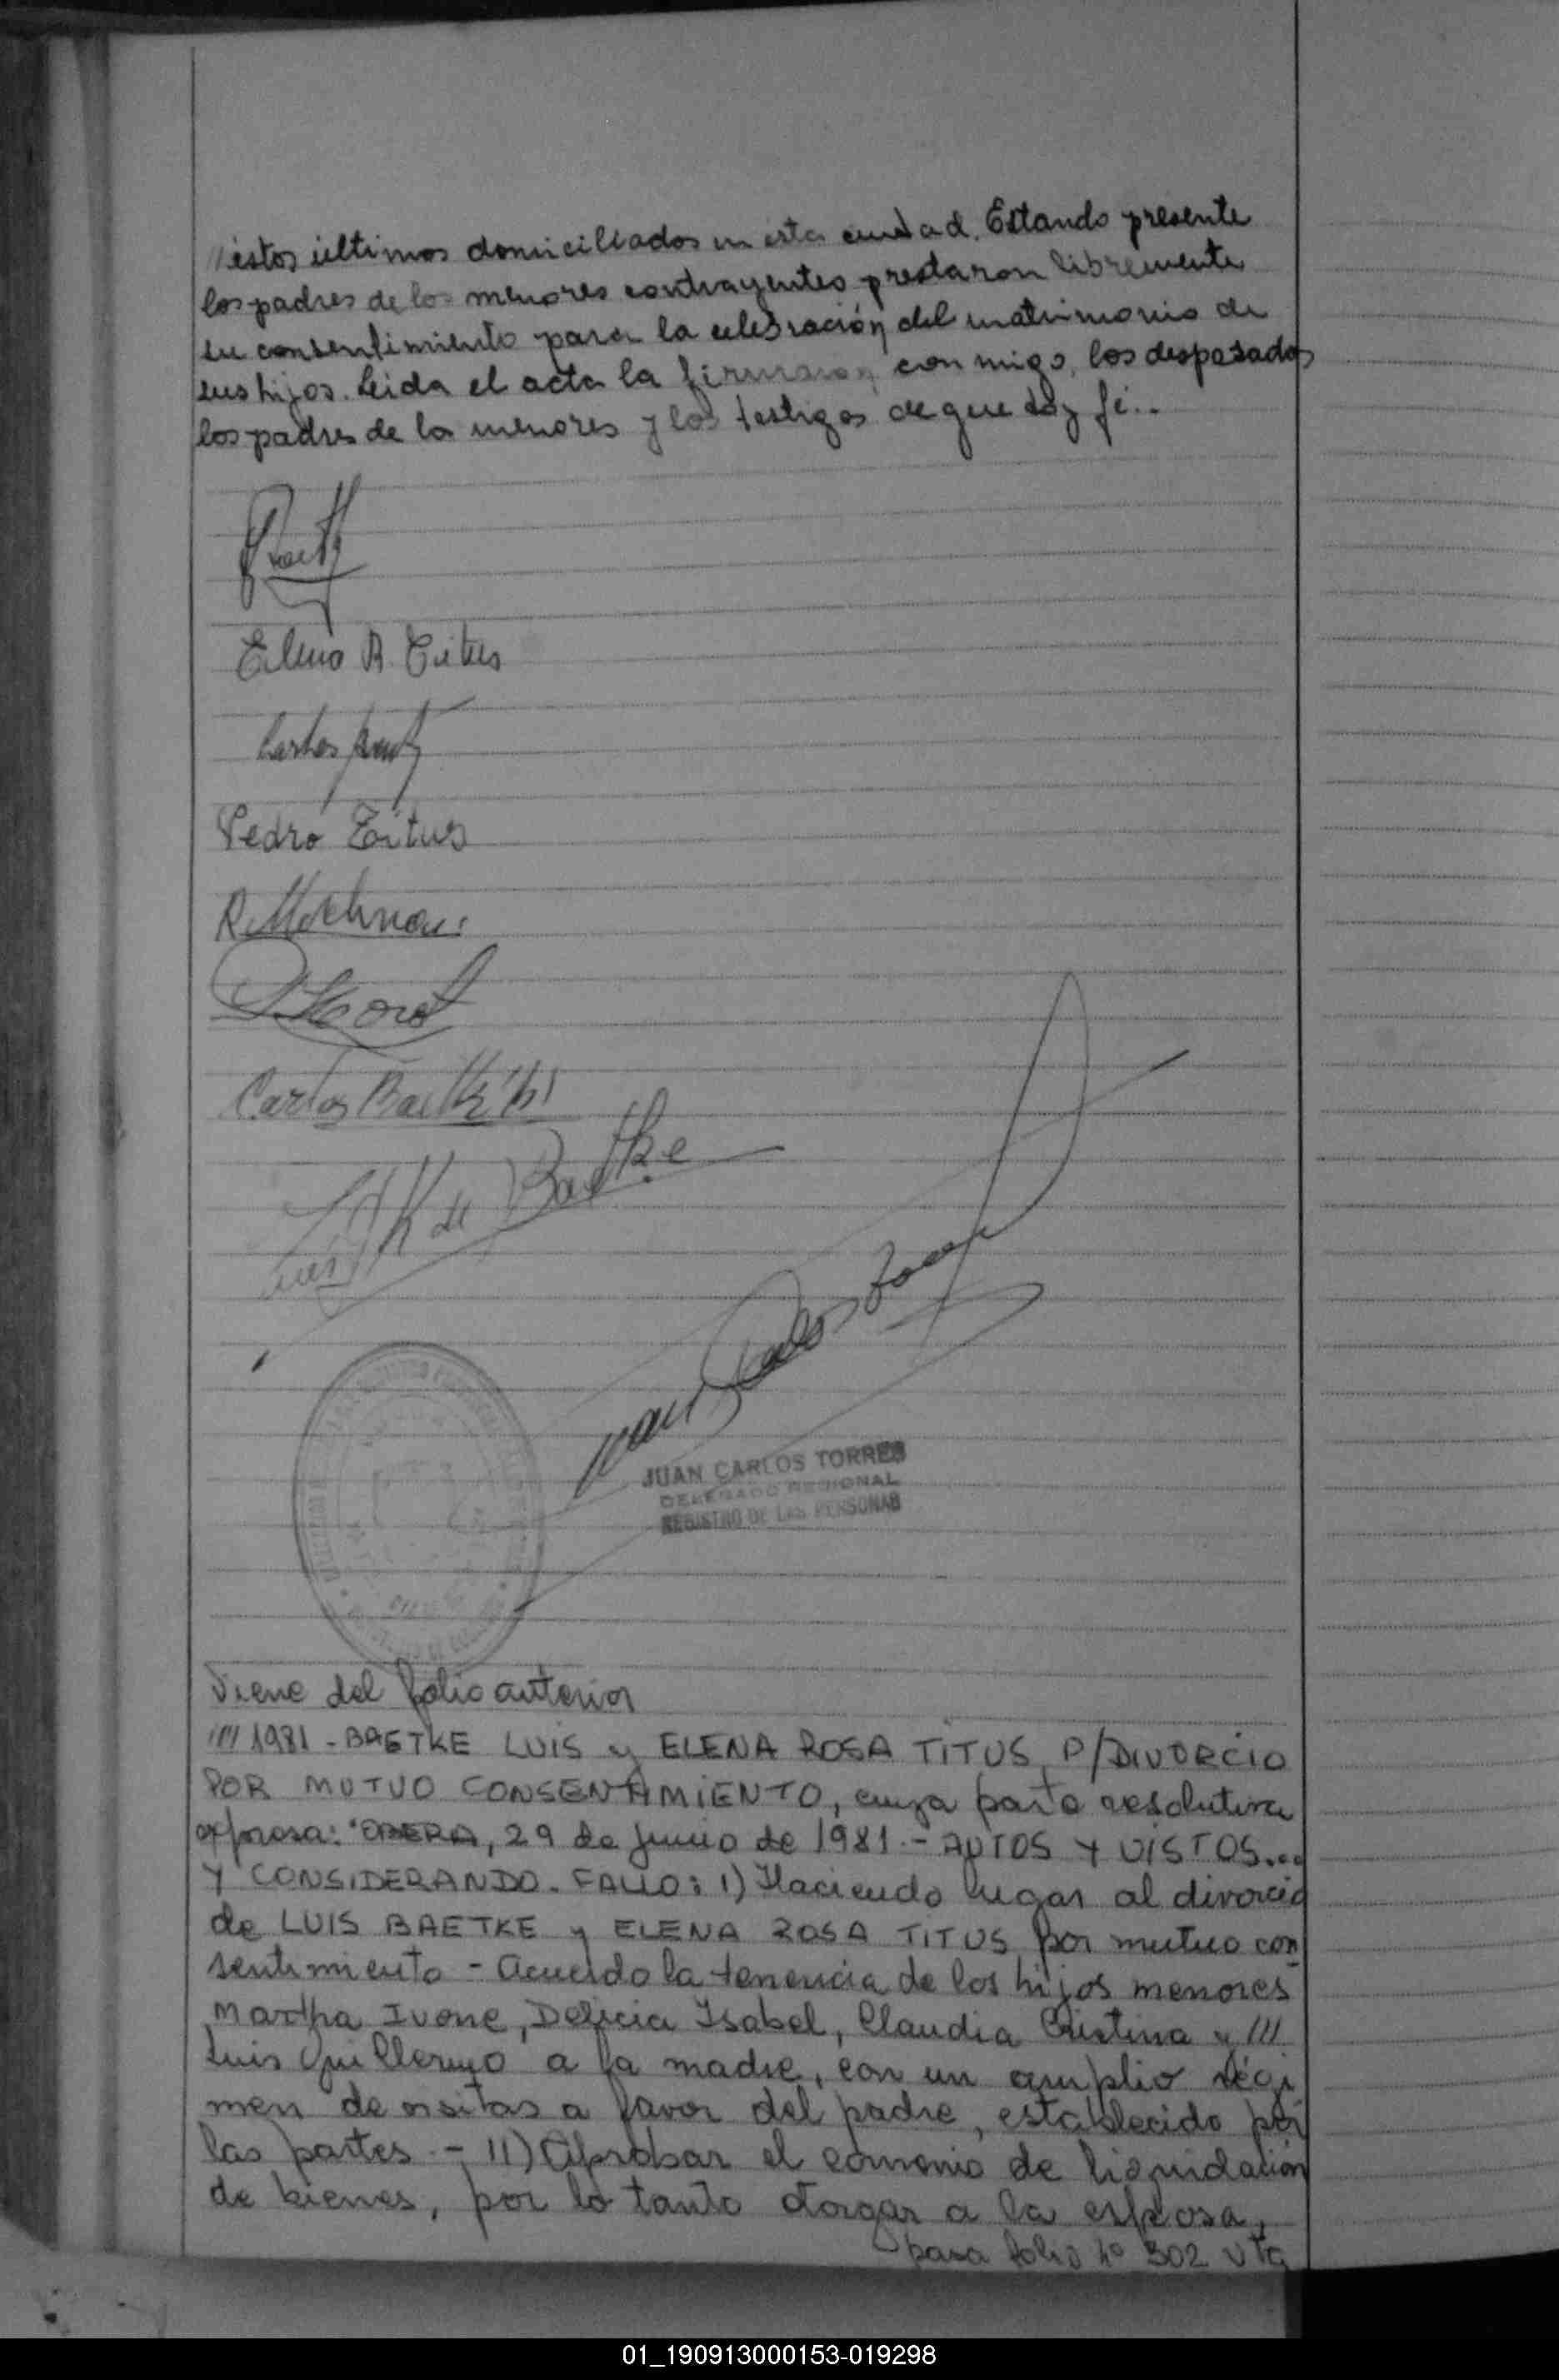 //éstos últimos domiciliados en esta ciudad. Estando presente
los padres de los menores contrayentes prestaron libremente
su consentimiento para la celebración del matrimonio de
sus hijos. Leida el acta la firmaron conmigo, los desposados
los padres de los menores y los testigos de que doy fé..
Elena R. Titus
Carlos
Pedro Titus
Carlos Baetke (h)
de Baetke
Juan Carlos Torres
JUAN CARLOS TORRES
DELEGADO REGIONAL
REGISTRO DE LAS PERSONAS
Viene del folio anterior
/// 1981 - BAETKE LUIS y ELENA ROSA TITUS P/DIVORCIO
POR MUTUO CONSENTIMIENTO, cuya parte resolutiva
expresa: "OBERA, 29 de junio de 1981.- AUTOS Y VISTOS...
Y CONSIDERANDO. FALLO: 1) Haciendo lugar al divorcio
de LUIS BAETKE y ELENA ROSA TITUS por mutuo con
sentimiento - Acuerdo la tenencia de los hijos menores
Martha Ivone, Delicia Isabel, Claudia Cristina y ///
Luis Guillermo a la madre, con un amplio régi
men de visitas a favor del padre, establecido por
las partes.- 11) Aprobar el convenio de liquidación
de bienes, por lo tanto otorgar a la esposa,
pasa folio nº 302 vta
01_190913000153-019298